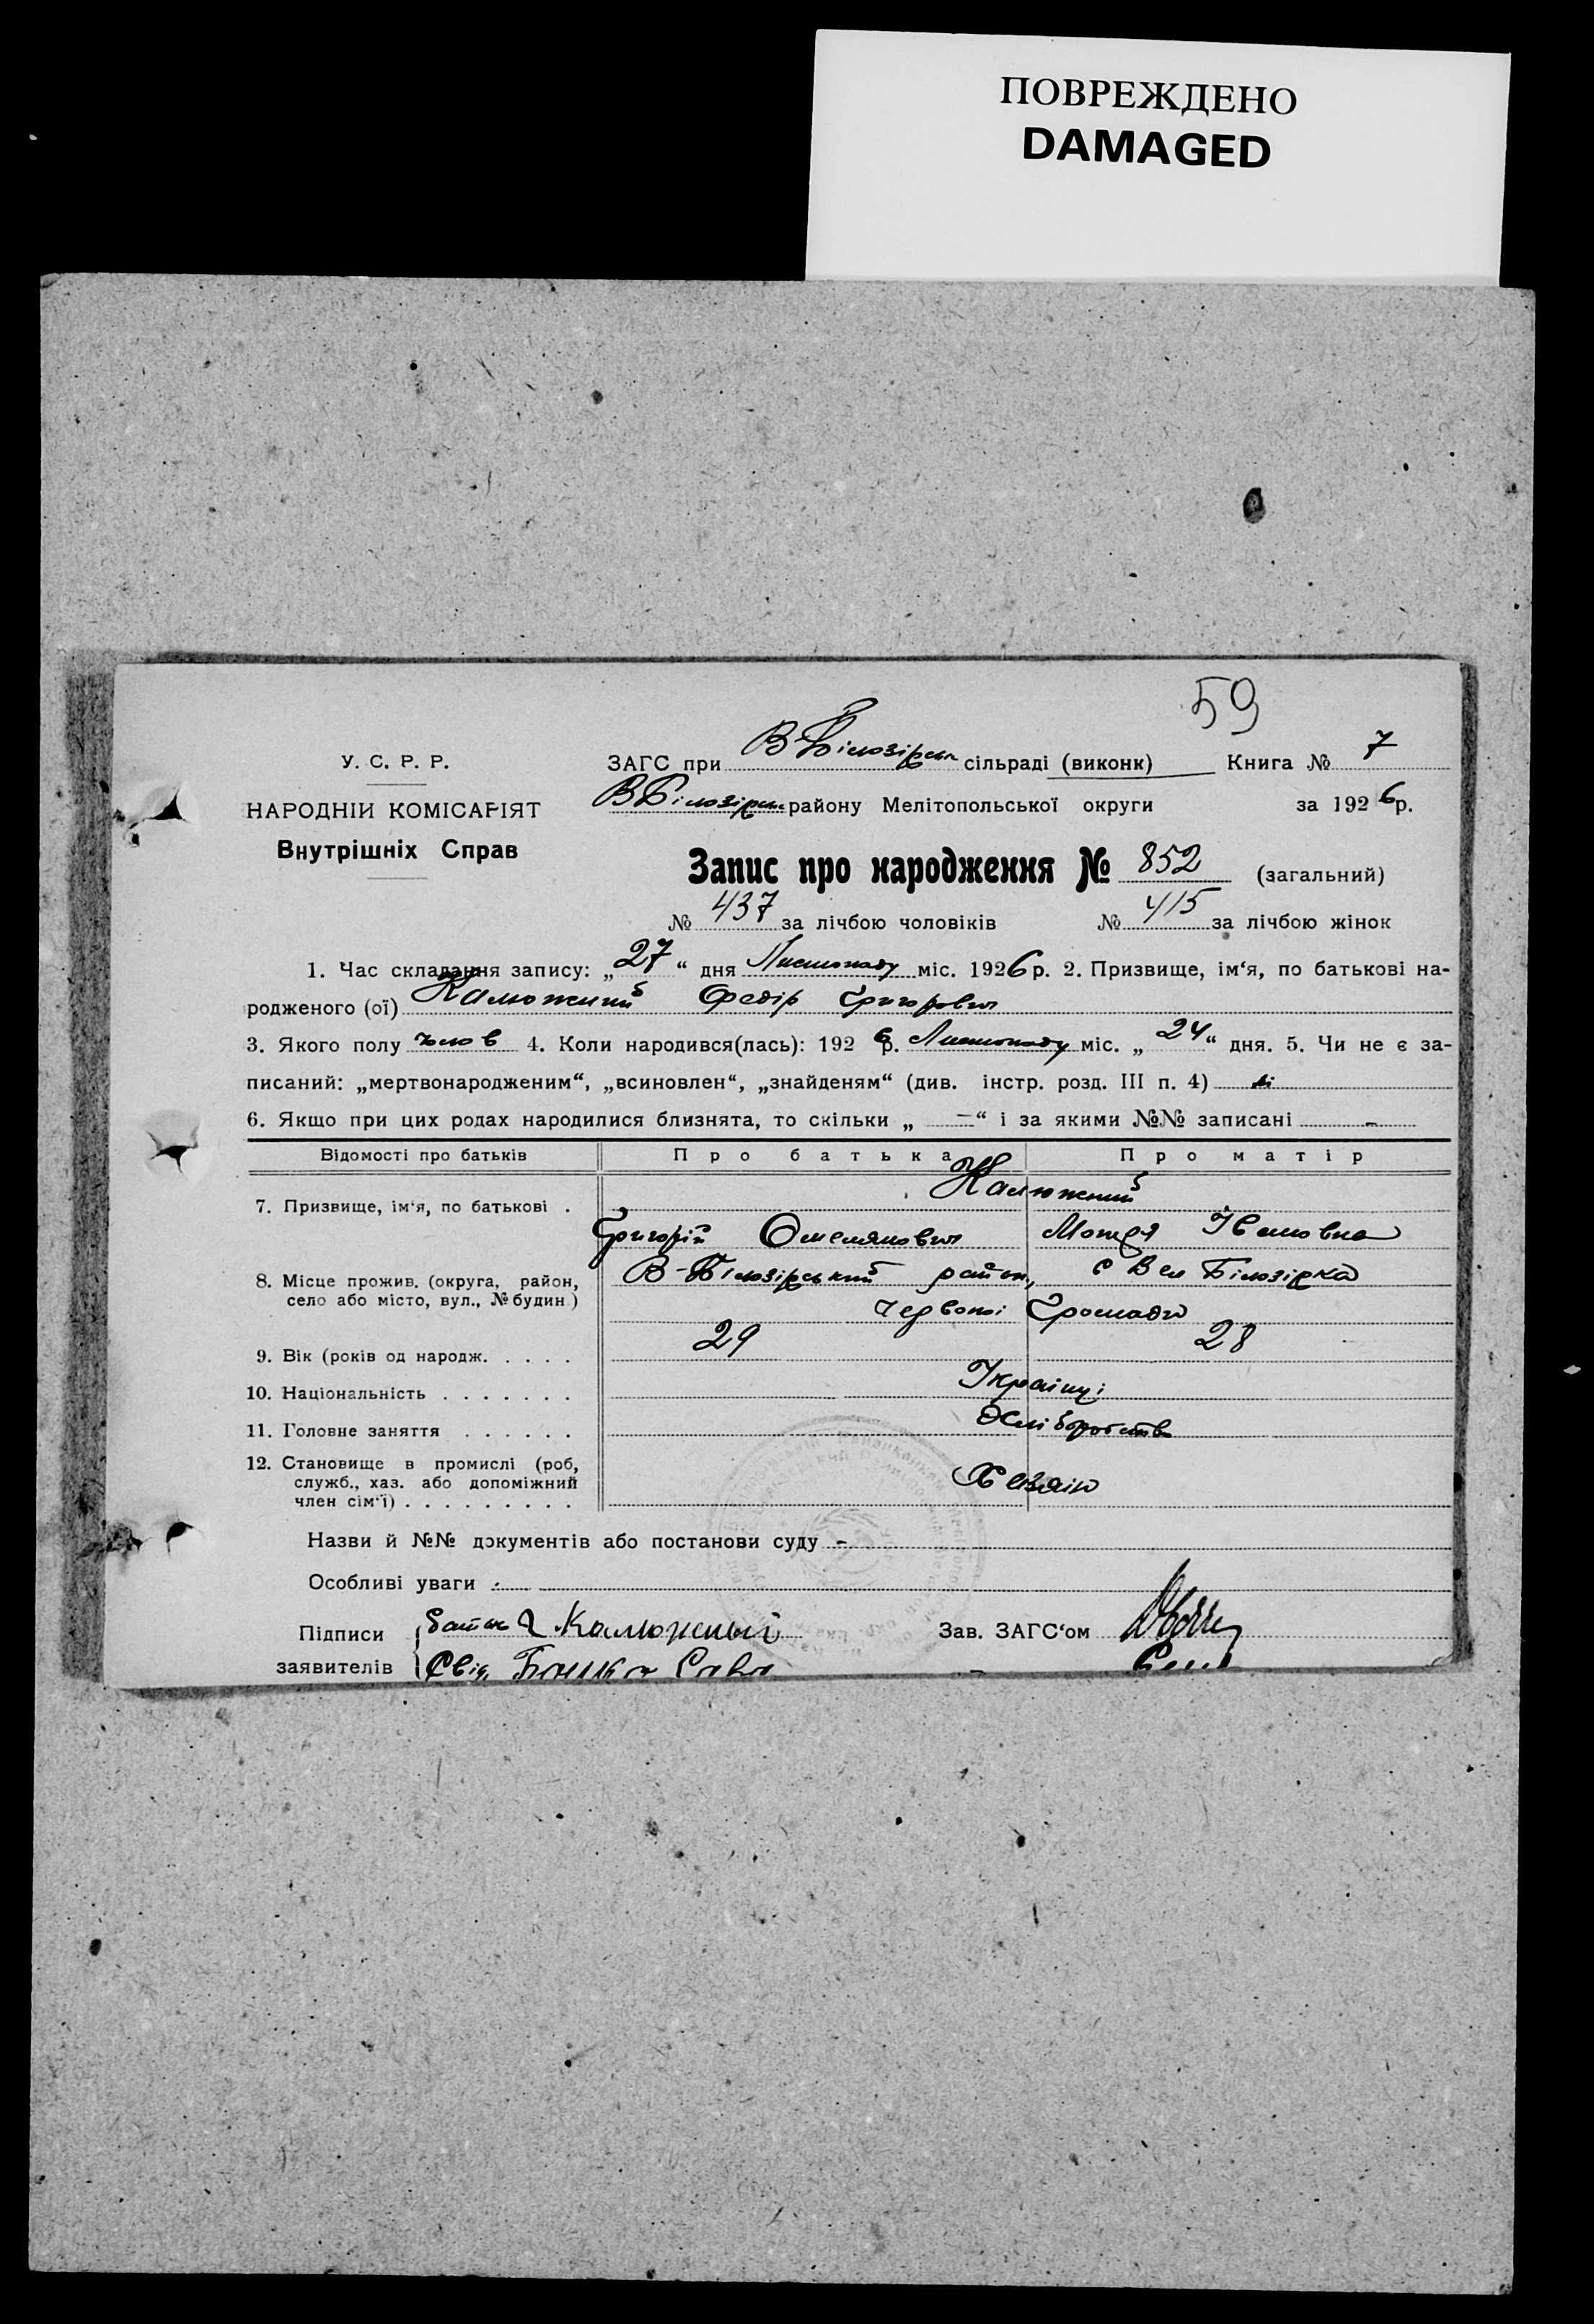 ПОВРЕЖДЕНО
DAMAGED
59
У. С. Р. Р.
НАРОДНІЙ КОМІСАРІЯТ
Внутрішніх Справ
ЗАГС при В-Білозірськ сільраді (виконк) Книга № 7
В Білозірськ району Мелітопольської округи за 1926 р.
Запис про народження № 852 (загальний)
№ 437 за лічбою чоловіків № 415 за лічбою жінок
1. Час складання запису: „27“ дня Листопаду міс. 1926 р. 2. Призвище, ім‘я, по батькові на-
родженого (ої) Калюжний Федір Григорович
3. Якого полу чолов 4. Коли народився(лась): 1926 р. Листопаду міс. „24“ дня. 5. Чи не є за-
писаний: „мертвонародженим“, „всиновлен“, „знайденям“ (див. інстр. розд. III п. 4) ні
6. Якщо при цих родах народилися близнята, то скільки „ — “ і за якими №№ записані -
Відомості про батьків Про батька Про матір
7. Призвище, ім‘я, по батькові . Калюжний
Григорій Омелянович Мотря Івановна
8. Місце прожив. (округа, район, село або місто, вул., № будин.) В-Білозірський район, с Вел Білозірка
Червоної Громади
9. Вік (років од народж. . . . . 29 28
10. Національність . . . . . . . Українці
11. Головне заняття . . . . . . Хліборобств
12. Становище в промислі (роб, служб., хаз. або допоміжний член сім‘ї) . . . . . . . . . Хазяін
Назви й №№ документів або постанови суду -
Особливі уваги
Підписи батько Калюжный Зав. ЗАГС‘ом
заявителів Свід. Сава